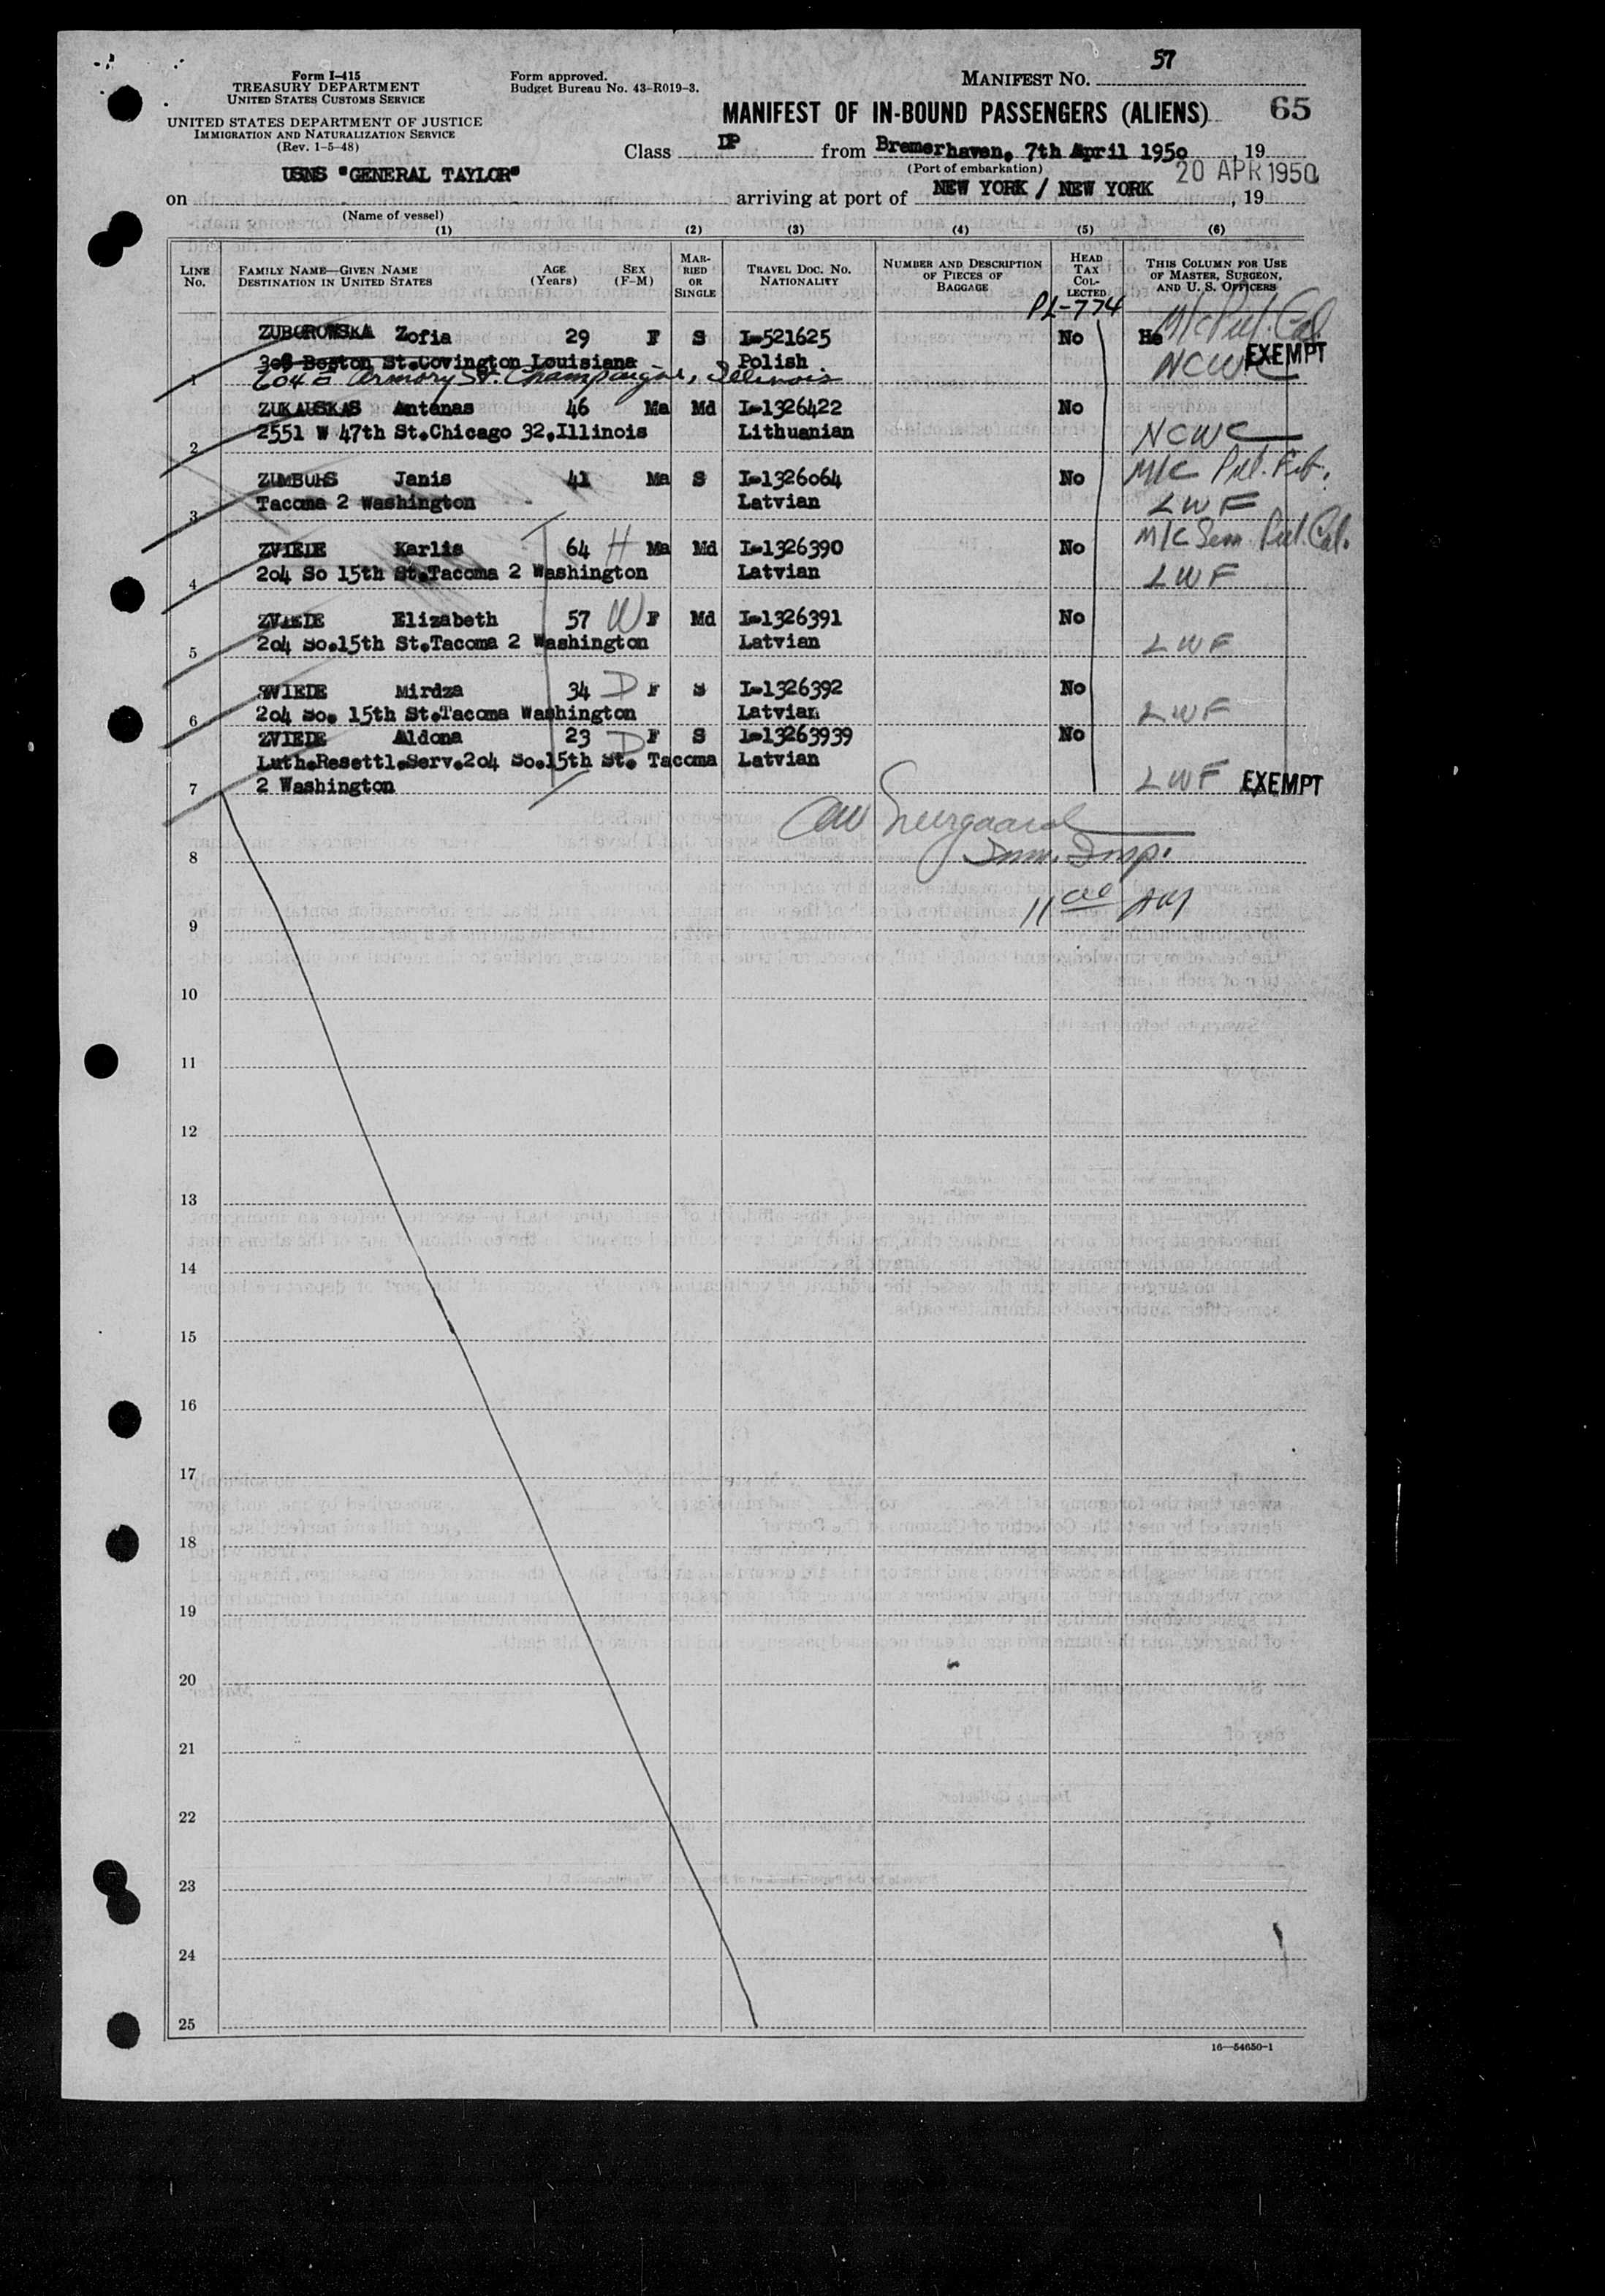 57
Form I-415
TREASURY DEPARTMENT
UNITED STATES CUSTOMS SERVICE
UNITED STATES DEPARTMENT OF JUSTICE
IMMIGRATION AND NATURALIZATION SERVICE
(Rev. 1-5-48)
Form approved.
Budget Bureau No. 43-R019-3.
MANIFEST NO.
MANIFEST OF IN-BOUND PASSENGERS (ALIENS) 65
Class DP from Bremerhaven, 7th April 1950, 19
(Port of embarkation)
20 APR 1950
on USNS "GENERAL TAYLOR" arriving at port of NEW YORK / NEW YORK, 19
(Name of vessel)
(1) (2) (3) (4) (5) (6)
LINE No.
FAMILY NAME—GIVEN NAME
DESTINATION IN UNITED STATES
AGE (Years)
SEX (F-M)
MARRIED OR SINGLE
TRAVEL DOC. NO.
NATIONALITY
NUMBER AND DESCRIPTION OF PIECES OF BAGGAGE
HEAD TAX COLLECTED
THIS COLUMN FOR USE OF MASTER, SURGEON, AND U. S. OFFICERS
PL-774
ZUBOROWSKA Zofia 29 F S I-521625 No He M/C Pul. Cal
308 Boston St.Covington Louisiana Polish NCWC EXEMPT
1 204 E Armory St. Champaigne, Illinois
ZUKAUSKAS Antanas 46 Ma Md I-1326422 No
2 2551 W 47th St.Chicago 32,Illinois Lithuanian NCWC
ZUMBURS Janis 41 Ma S I-1326064 No M/C Pul. Fib.
3 Tacoma 2 Washington Latvian LWF
ZVIEDE Karlis 64 H Ma Md I-1326390 No M/C Sem. Pul. Cal.
4 204 So 15th St.Tacoma 2 Washington Latvian LWF
ZVIEDE Elizabeth 57 W F Md I-1326391 No
5 204 So.15th St.Tacoma 2 Washington Latvian LWF
ZVIEDE Mirdza 34 D F S I-1326392 No
6 204 So. 15th St.Tacoma Washington Latvian LWF
ZVIEDE Aldona 23 D F S I-13263939 No
Luth.Resettl.Serv.204 So.15th St. Tacoma Latvian
7 2 Washington LWF EXEMPT
Imm. Insp.
8
11 00 AM
9
10
11
12
13
14
15
16
17
18
19
20
21
22
23
24
25
16—54650-1